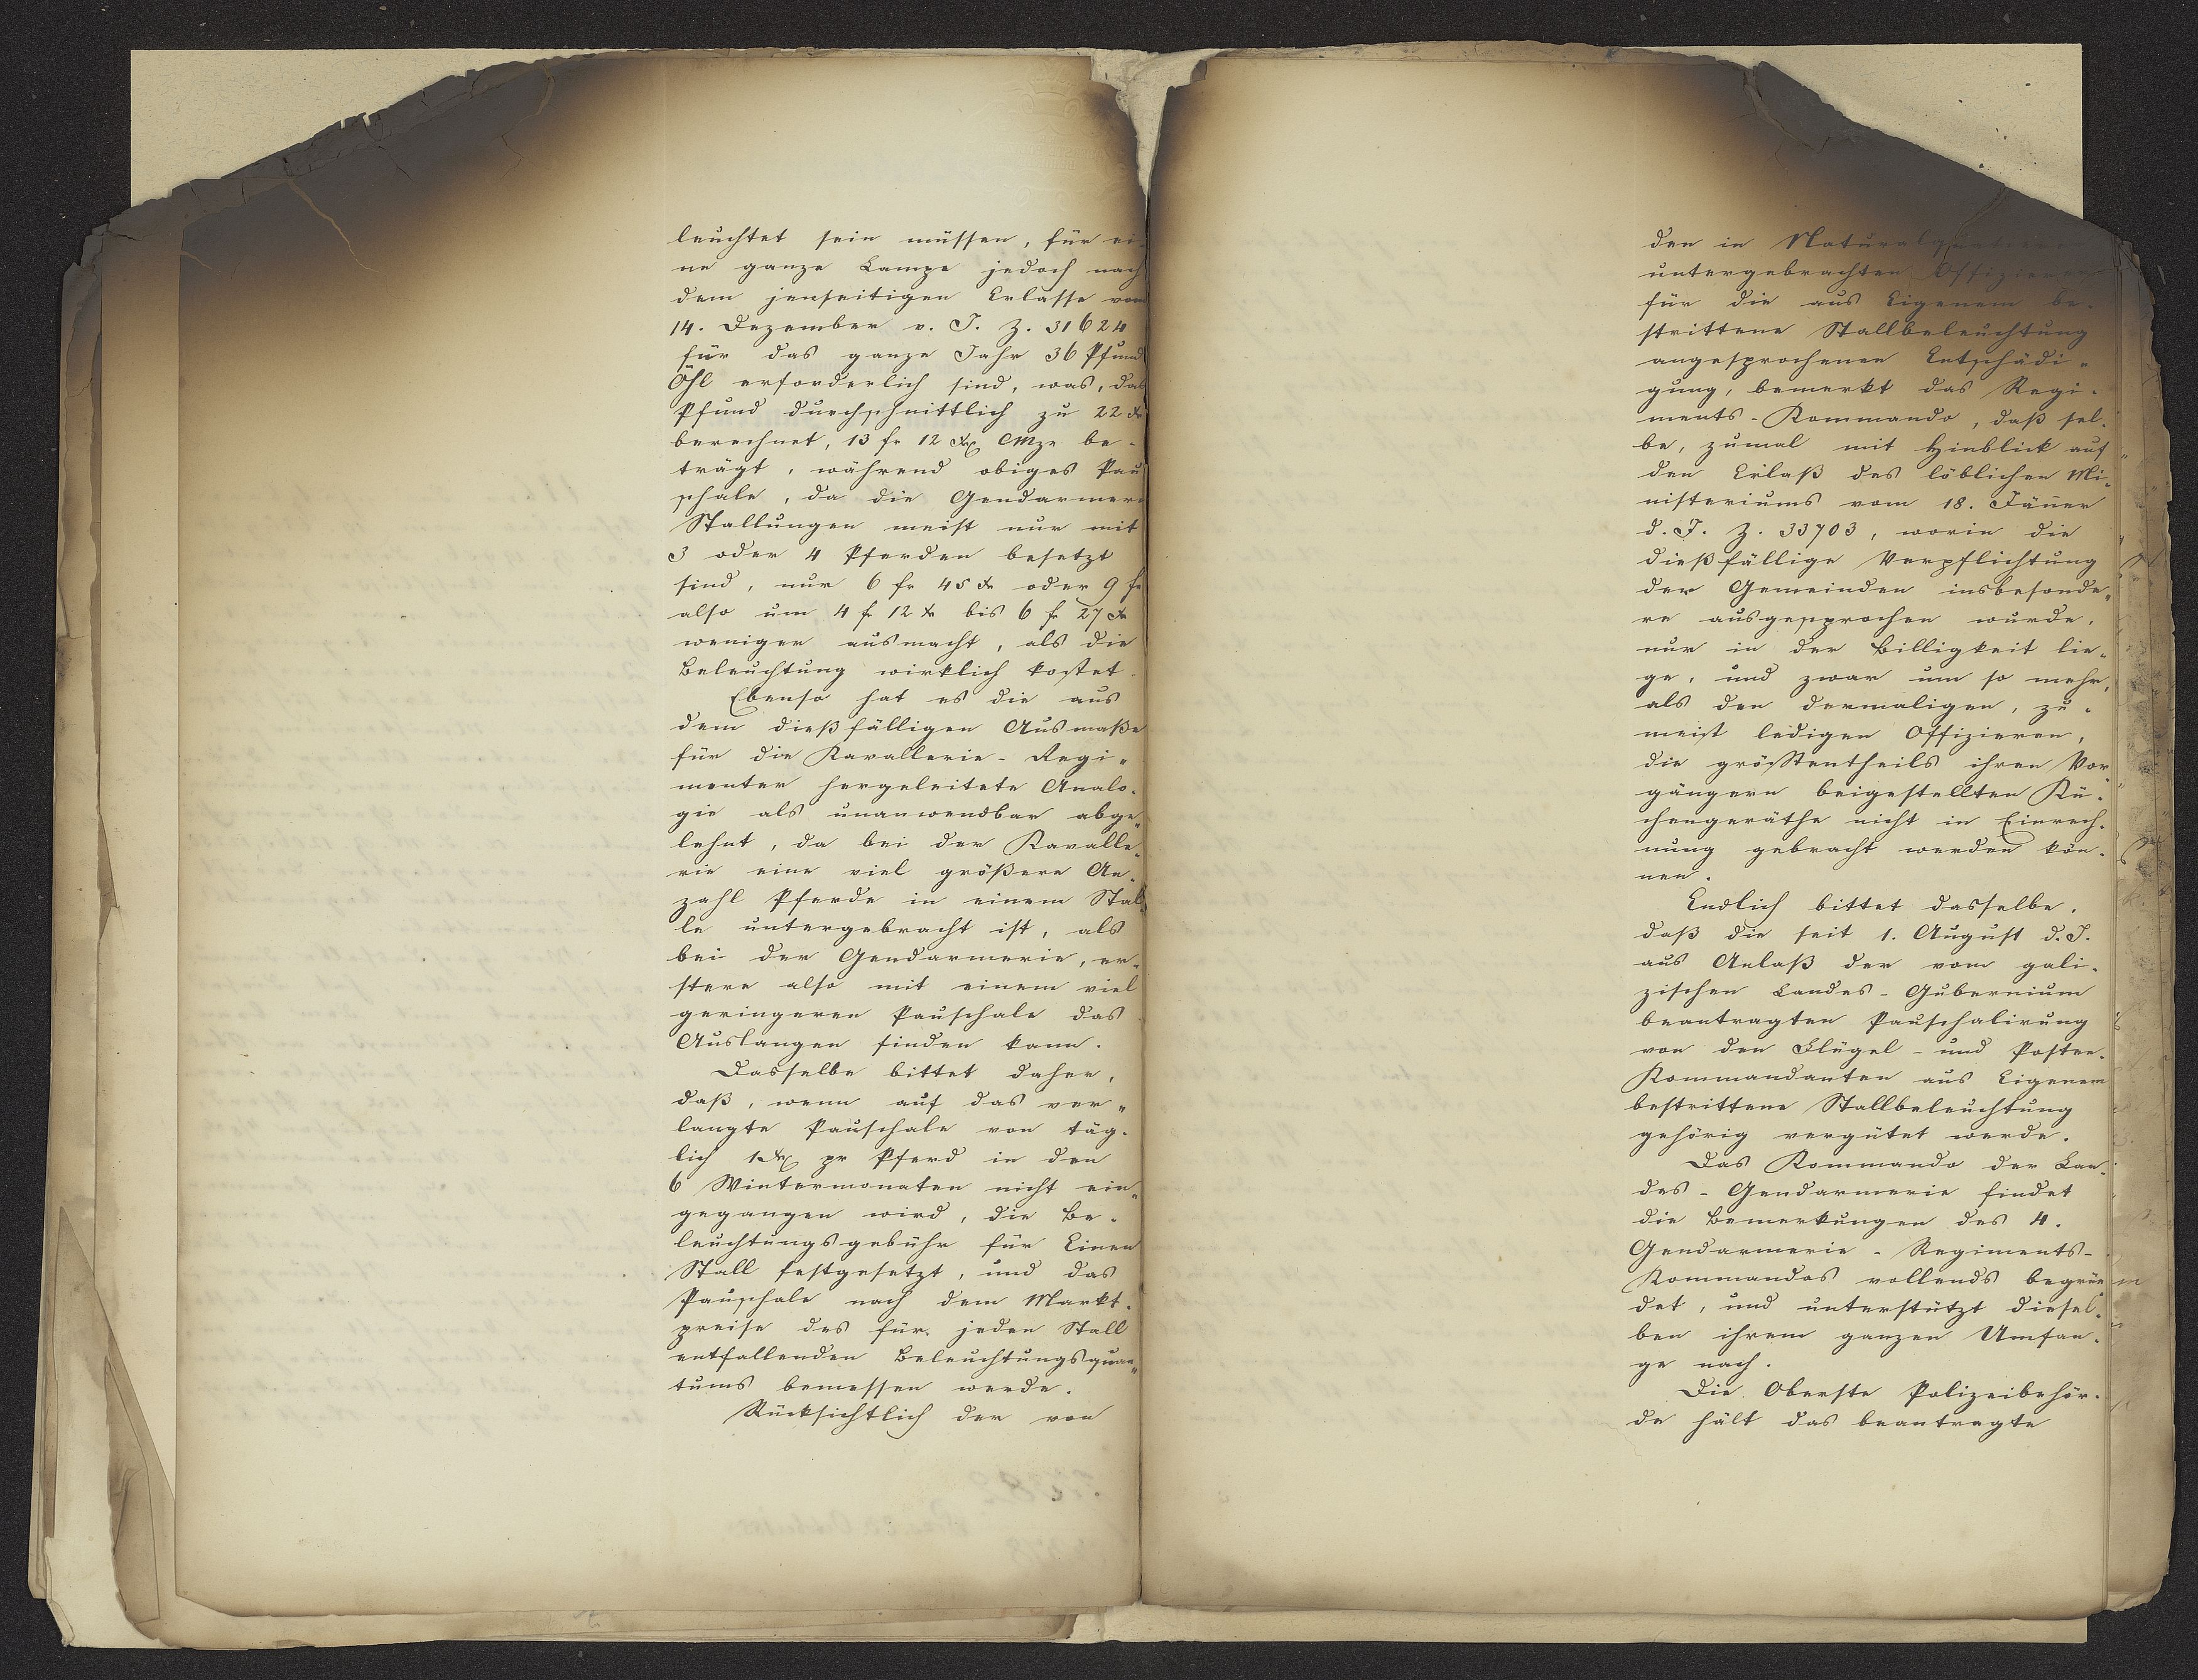 leuchtet sein müssen, für ei-
ne ganze Lampe jedoch nach
dem jenseitigen Erlasse vom
14. Dezember v. J. Z. 31624
für das ganze Jahr 36 Pfund
Öhl erforderlich sind, was, das
Pfund durchschnittlich zu 22 xr
berechnet, 13 fr 12 xr CMze be-
trägt, während obiges Pau
schale, da die Gendarmerie
Stallungen meist nur mit
3 oder 4 Pferden besetzt
sind, nur 6 fr 45 xr oder 9 fr
also um 4 fr 12 xr bis 6 fr 27 xr
weniger ausmacht, als die
Beleuchtung wirklich kostet.
Ebenso hat es die aus
dem dießfälligen Ausmaße
für die Kavallerie-Regi-
menter hergeleitete Analo-
gie als unanwendbar abge-
lehnt, da bei der Kavalle-
rie eine viel größere An-
zahl Pferde in einem Stal-
le untergebracht ist, als
bei der Gendarmerie, er-
stere also mit einem viel
geringeren Pauschale das
Auslangen finden kann.
Dasselbe bittet daher,
daß, wenn auf das ver-
langte Pauschale von täg-
lich 1 xr pr Pferd in den
6 Wintermonaten nicht ein-
gegangen wird, die Be-
leuchtungsgebühr für Einen
Stall festgesetzt, und das
Pauschale nach dem Markt-
preise des für jeden Stall
entfallenden Beleuchtungsquan-
tums bemessen werde.
Rücksichtlich der von
den in Naturalquartieren
untergebrachten Offizieren
für die aus Eigenem be-
strittene Stallbeleuchtung
angesprochenen Entschädi-
gung, bemerkt das Regi-
ments-Kommando, daß sel-
be, zumal mit Hinblick auf
den Erlaß des löblichen Mi-
nisteriums vom 18. Jäner
d. J. Z. 33703, worin die
dießfällige Verpflichtung
der Gemeinden insbesonde-
re ausgesprochen wurde,
nur in der Billigkeit lie-
ge, und zwar um so mehr,
als den dermaligen, zu-
meist ledigen Offizieren,
die größtentheils ihren Vor-
gängern beigestellten Kü-
chengeräthe nicht in Einrech-
nung gebracht werden kön-
nen.
Endlich bittet dasselbe,
daß die seit 1. August d. J.
aus Anlaß der vom gali-
zischen Landes-Gubernium
beantragten Pauschalirung
von den Flügel- und Posten-
Kommandanten aus Eigenem
bestrittene Stallbeleuchtung
gehörig vergütet werde.
Das Kommando der Lan-
des-Gendarmerie findet
die Bemerkungen des 4.
Gendarmerie-Regiments-
Kommandos vollends begrün
det, und unterstützt diesel-
ben ihrem ganzen Umfan-
ge nach.
Die Oberste Polizeibehör-
de hält das beantragte